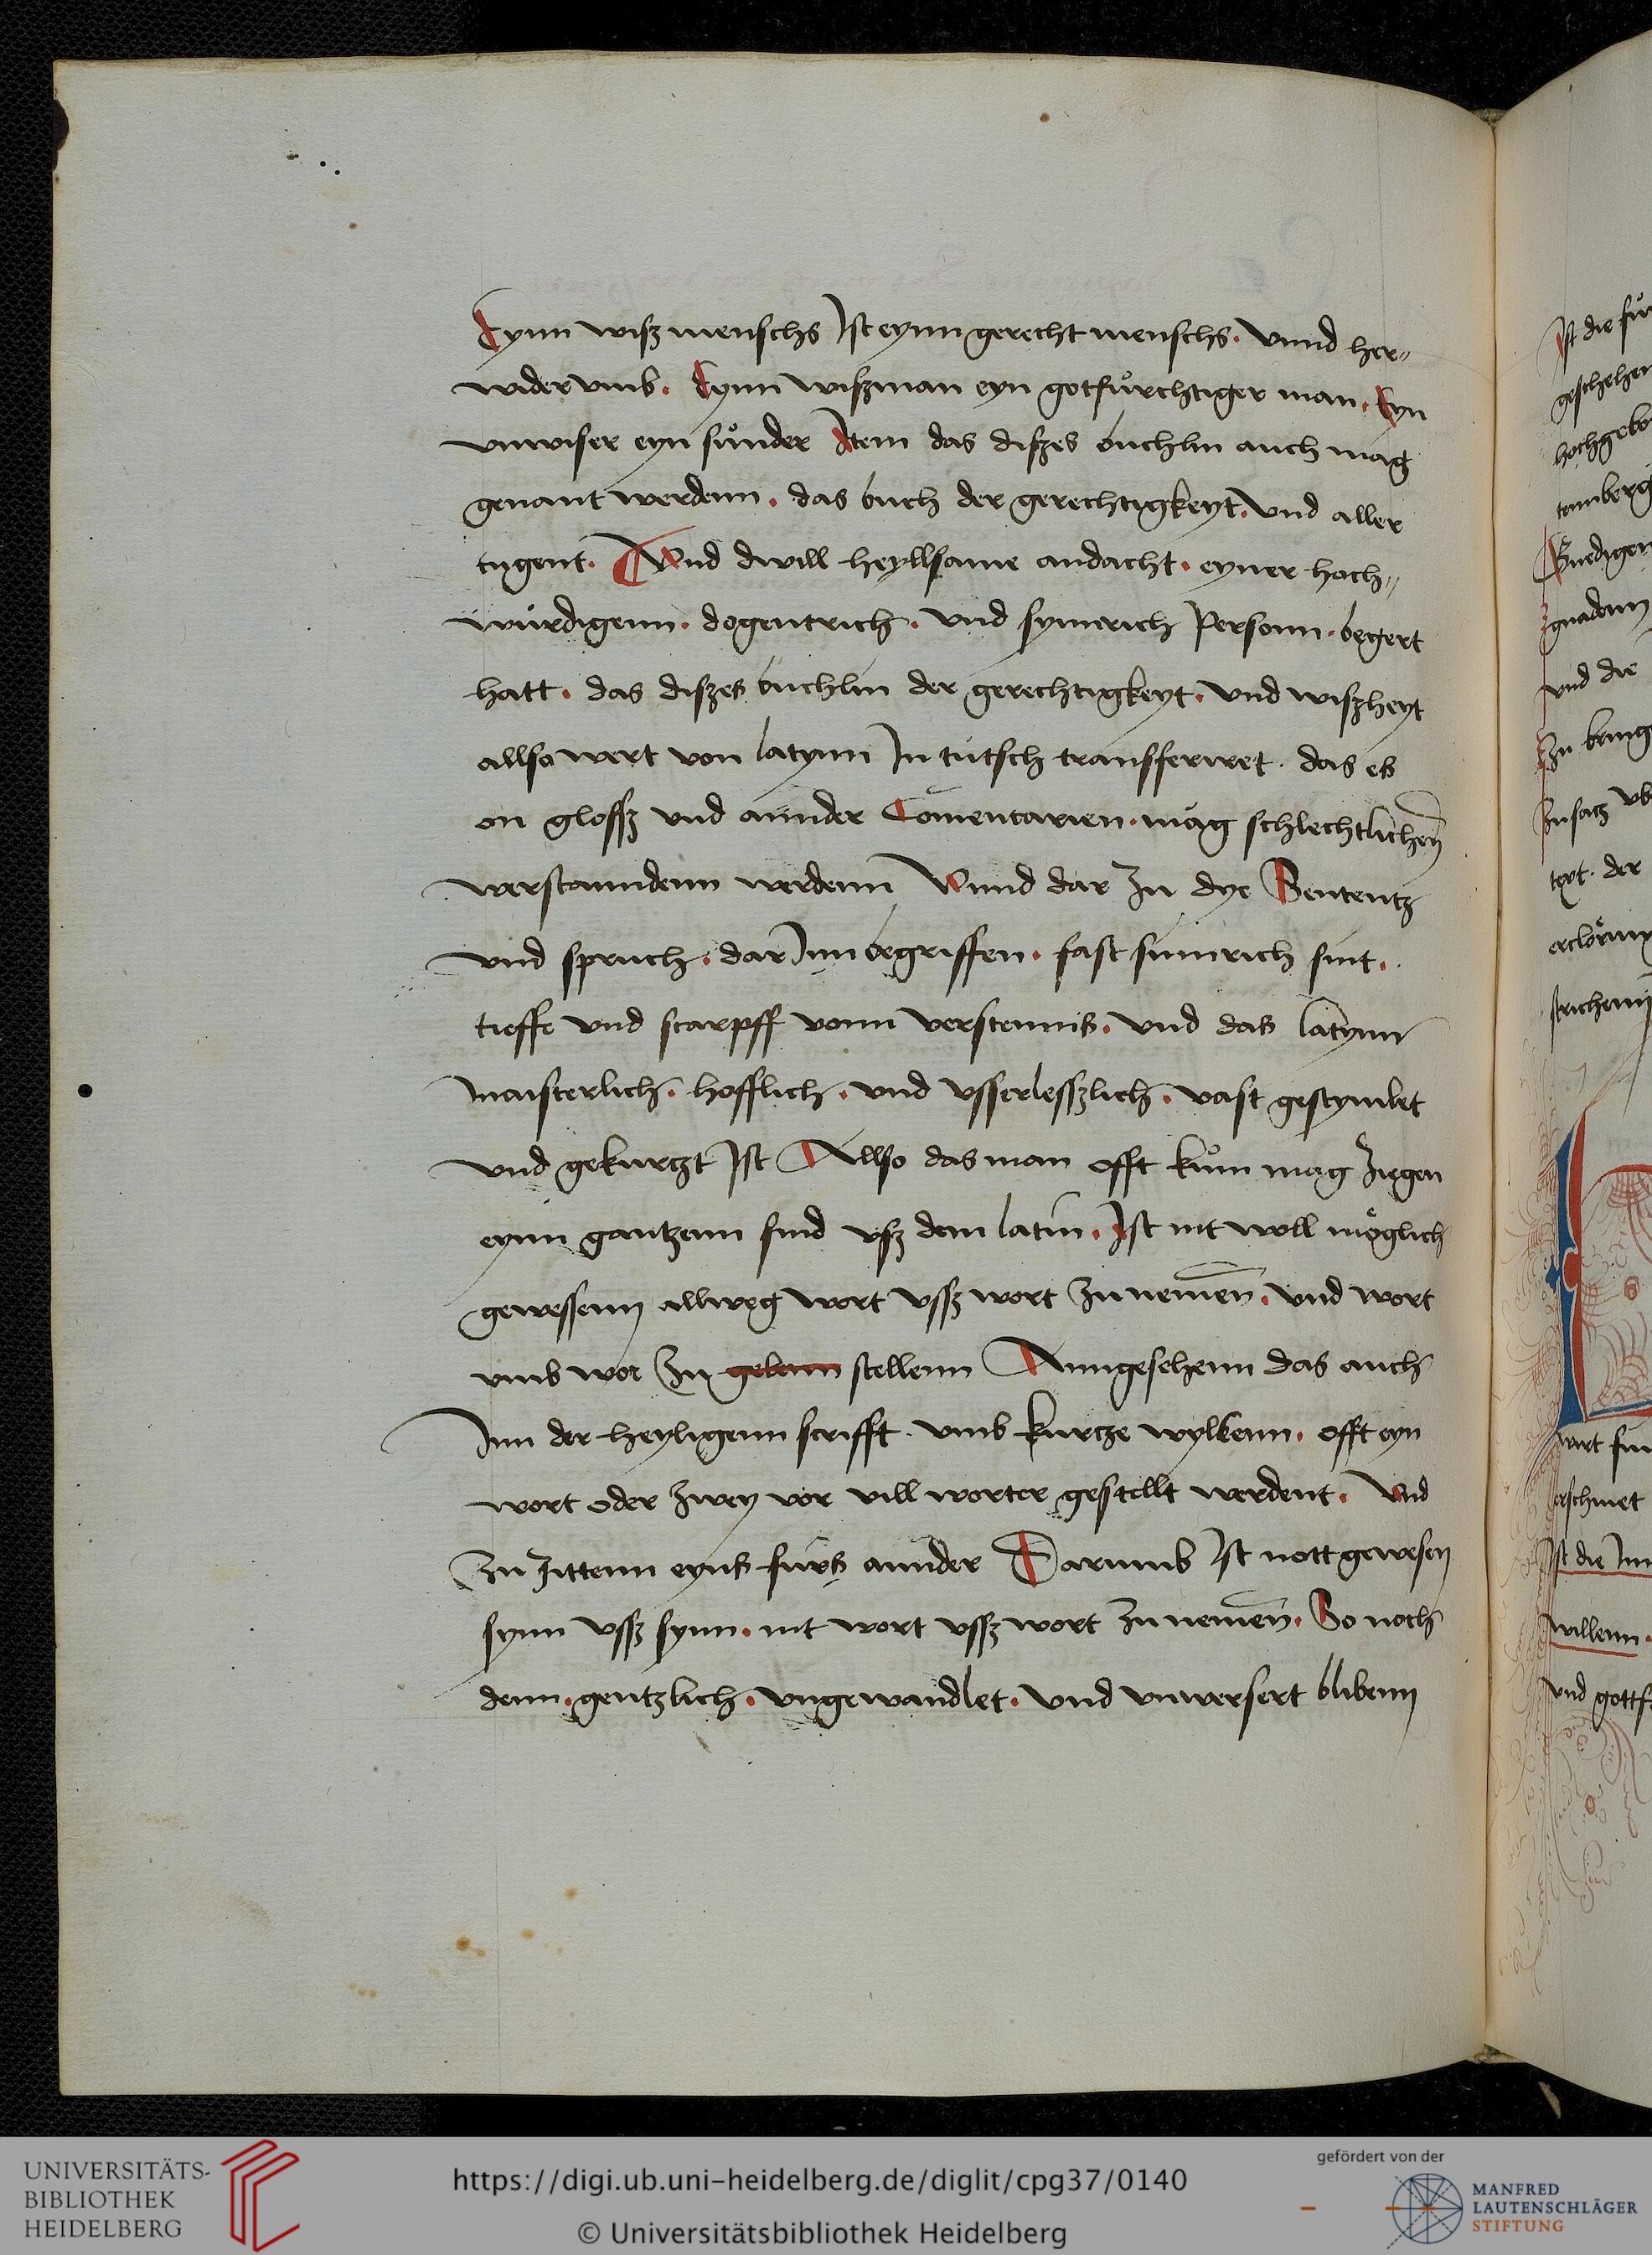 Eynn wisz menschs Ist eynn gerecht menschs. vnnd her„
widervmb. Eynn wiszman eyn gotfůrchtiger man. Eyn
vnwiser eyn sůnder Item das diszes buchlin auch mag
genant werdenn. das buch der gerechtigkeyt. vnd aller
tugent. Und dwill heyllsame andacht. eyner hoch„
würdigenn. dogentrich. vnd synnrich Personn. begert
hatt. das diszes buchlin der gerechtigkeyt. vnd wiszheyt
allso wert von latynn In tütsch transferiret. das es
on glossz vnd annder Comentarien. mag schlechtlichen
verstanndenn werdenn Vnnd dar zu dye Sententz
vnd spruch. dar Inn begriffen. fast sinnrich sint.
tieffe vnd scarpff vonn verstennis. vnd das latynn
maisterlich. hofflich. vnd vsserlesszlich. vast gestymlet
vnd gekurtzt Ist Allso das man offt kům mag ziegen
eynn gantzenn sind vsz dem latin. Ist nit woll möglich
gewessenn allweg wort vssz wort zu nemen. vnd wort
vmb wor zu gebenn stellenn Anngesehenn das auch
Inn der heyligenn scrifft. vmb kurtze wylbenn. offt eyn
wort oder zwey vor vill worter gestellt werdent. Vnd
zu zittenn eyns fürs annder Darumb Ist nott gewesen
synn vssz synn. nit wort vssz wort zu nemen. So noch
denn. gentzlich. vngewandlet. vnd vnversert blibenn
Ist die für
geschehen
hochgebo
temberg
Gnedigen
gnadenn
vnd die
zu bring
zusatz vb
text. der
strichenn
wort sin
Ist die Inn
willenn.
vnd gottf
UNIVERSITÄTS-
BIBLIOTHEK
HEIDELBERG
https://digi.ub.uni-heidelberg.de/diglit/cpg37/0140
© Universitätsbibliothek Heidelberg
gefördert von der
MANFRED
LAUTENSCHLÄGER
STIFTUNG